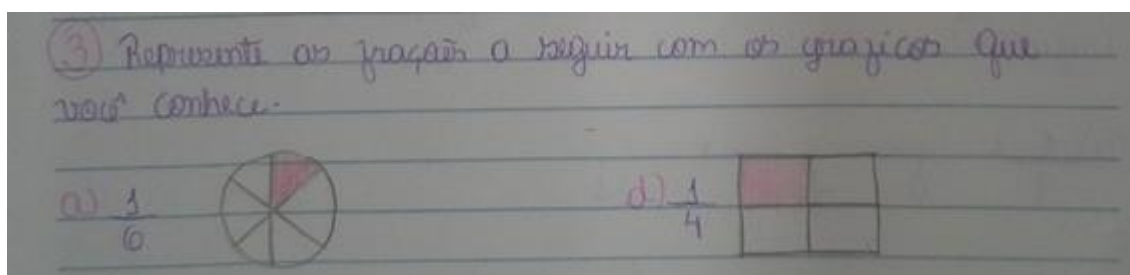 3 Represente as frações a seguir com os graficos que
você conhece.
a) 1/6 d) 1/4